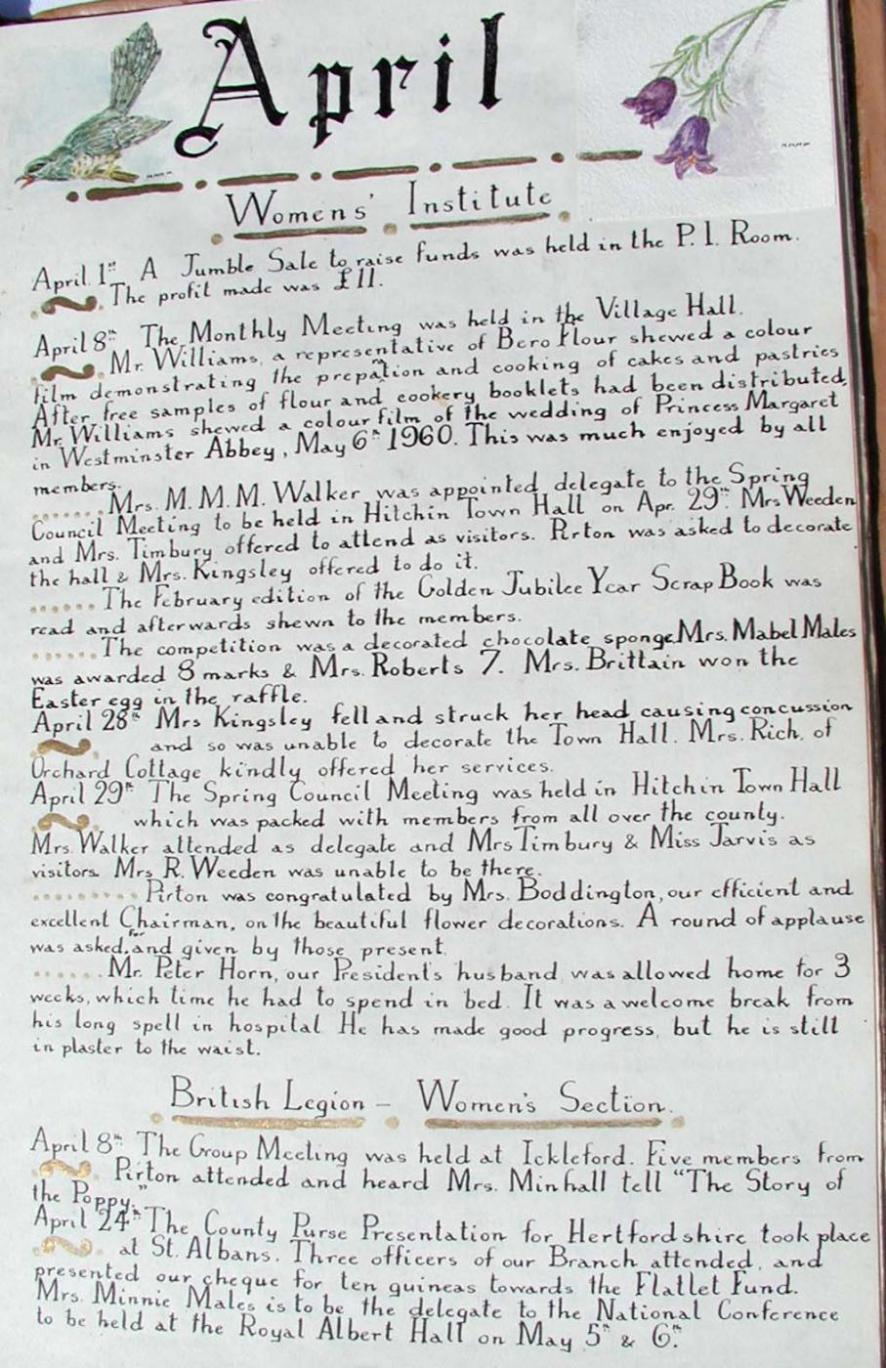 April
Womens' Institute
April 1st. A Jumble Sale to raise funds was held in the P. I. Room.
The profit made was £11.
April 8th The Monthly Meeting was held in the Village Hall.
Mr. Williams, a representative of Bero Flour shewed a colour
film demonstrating the prepation and cooking of cakes and pastries
After free samples of flour and cookery booklets had been distributed,
Mr. Williams shewed a colour film of the wedding of Princess Margaret
in Westminster Abbey, May 6th 1960. This was much enjoyed by all
members.
....... Mrs. M. M. M. Walker was appointed delegate to the Spring
Council Meeting to be held in Hitchin Town Hall on Apr. 29th. Mrs Weeden
and Mrs. Timbury offered to attend as visitors. Pirton was asked to decorate
the hall & Mrs. Kingsley offered to do it.
...... The February edition of the Golden Jubilee Year Scrap Book was
read and afterwards shewn to the members.
...... The competition was a decorated chocolate sponge. Mrs. Mabel Males
was awarded 8 marks & Mrs. Roberts 7. Mrs. Brittain won the
Easter egg in the raffle.
April 28th Mrs Kingsley fell and struck her head causing concussion
and so was unable to decorate the Town Hall. Mrs. Rich, of
Orchard Cottage kindly offered her services.
April 29th The Spring Council Meeting was held in Hitchin Town Hall
which was packed with members from all over the county.
Mrs. Walker attended as delegate and Mrs Timbury & Miss Jarvis as
visitors. Mrs R. Weeden was unable to be there.
.......... Pirton was congratulated by Mrs. Boddington, our efficient and
excellent Chairman, on the beautiful flower decorations. A round of applause
was asked for and given by those present.
...... Mr. Peter Horn, our President's husband, was allowed home for 3
weeks, which time he had to spend in bed. It was a welcome break from
his long spell in hospital He has made good progress, but he is still
in plaster to the waist.
British Legion – Women's Section.
April 8th The Group Meeting was held at Ickleford. Five members from
Pirton attended and heard Mrs. Minhall tell "The Story of
the Poppy."
April 24th The County Purse Presentation for Hertfordshire took place
at St. Albans. Three officers of our Branch attended, and
presented our cheque for ten guineas towards the Flatlet Fund.
Mrs. Minnie Males is to be the delegate to the National Conference
to be held at the Royal Albert Hall on May 5th & 6th.